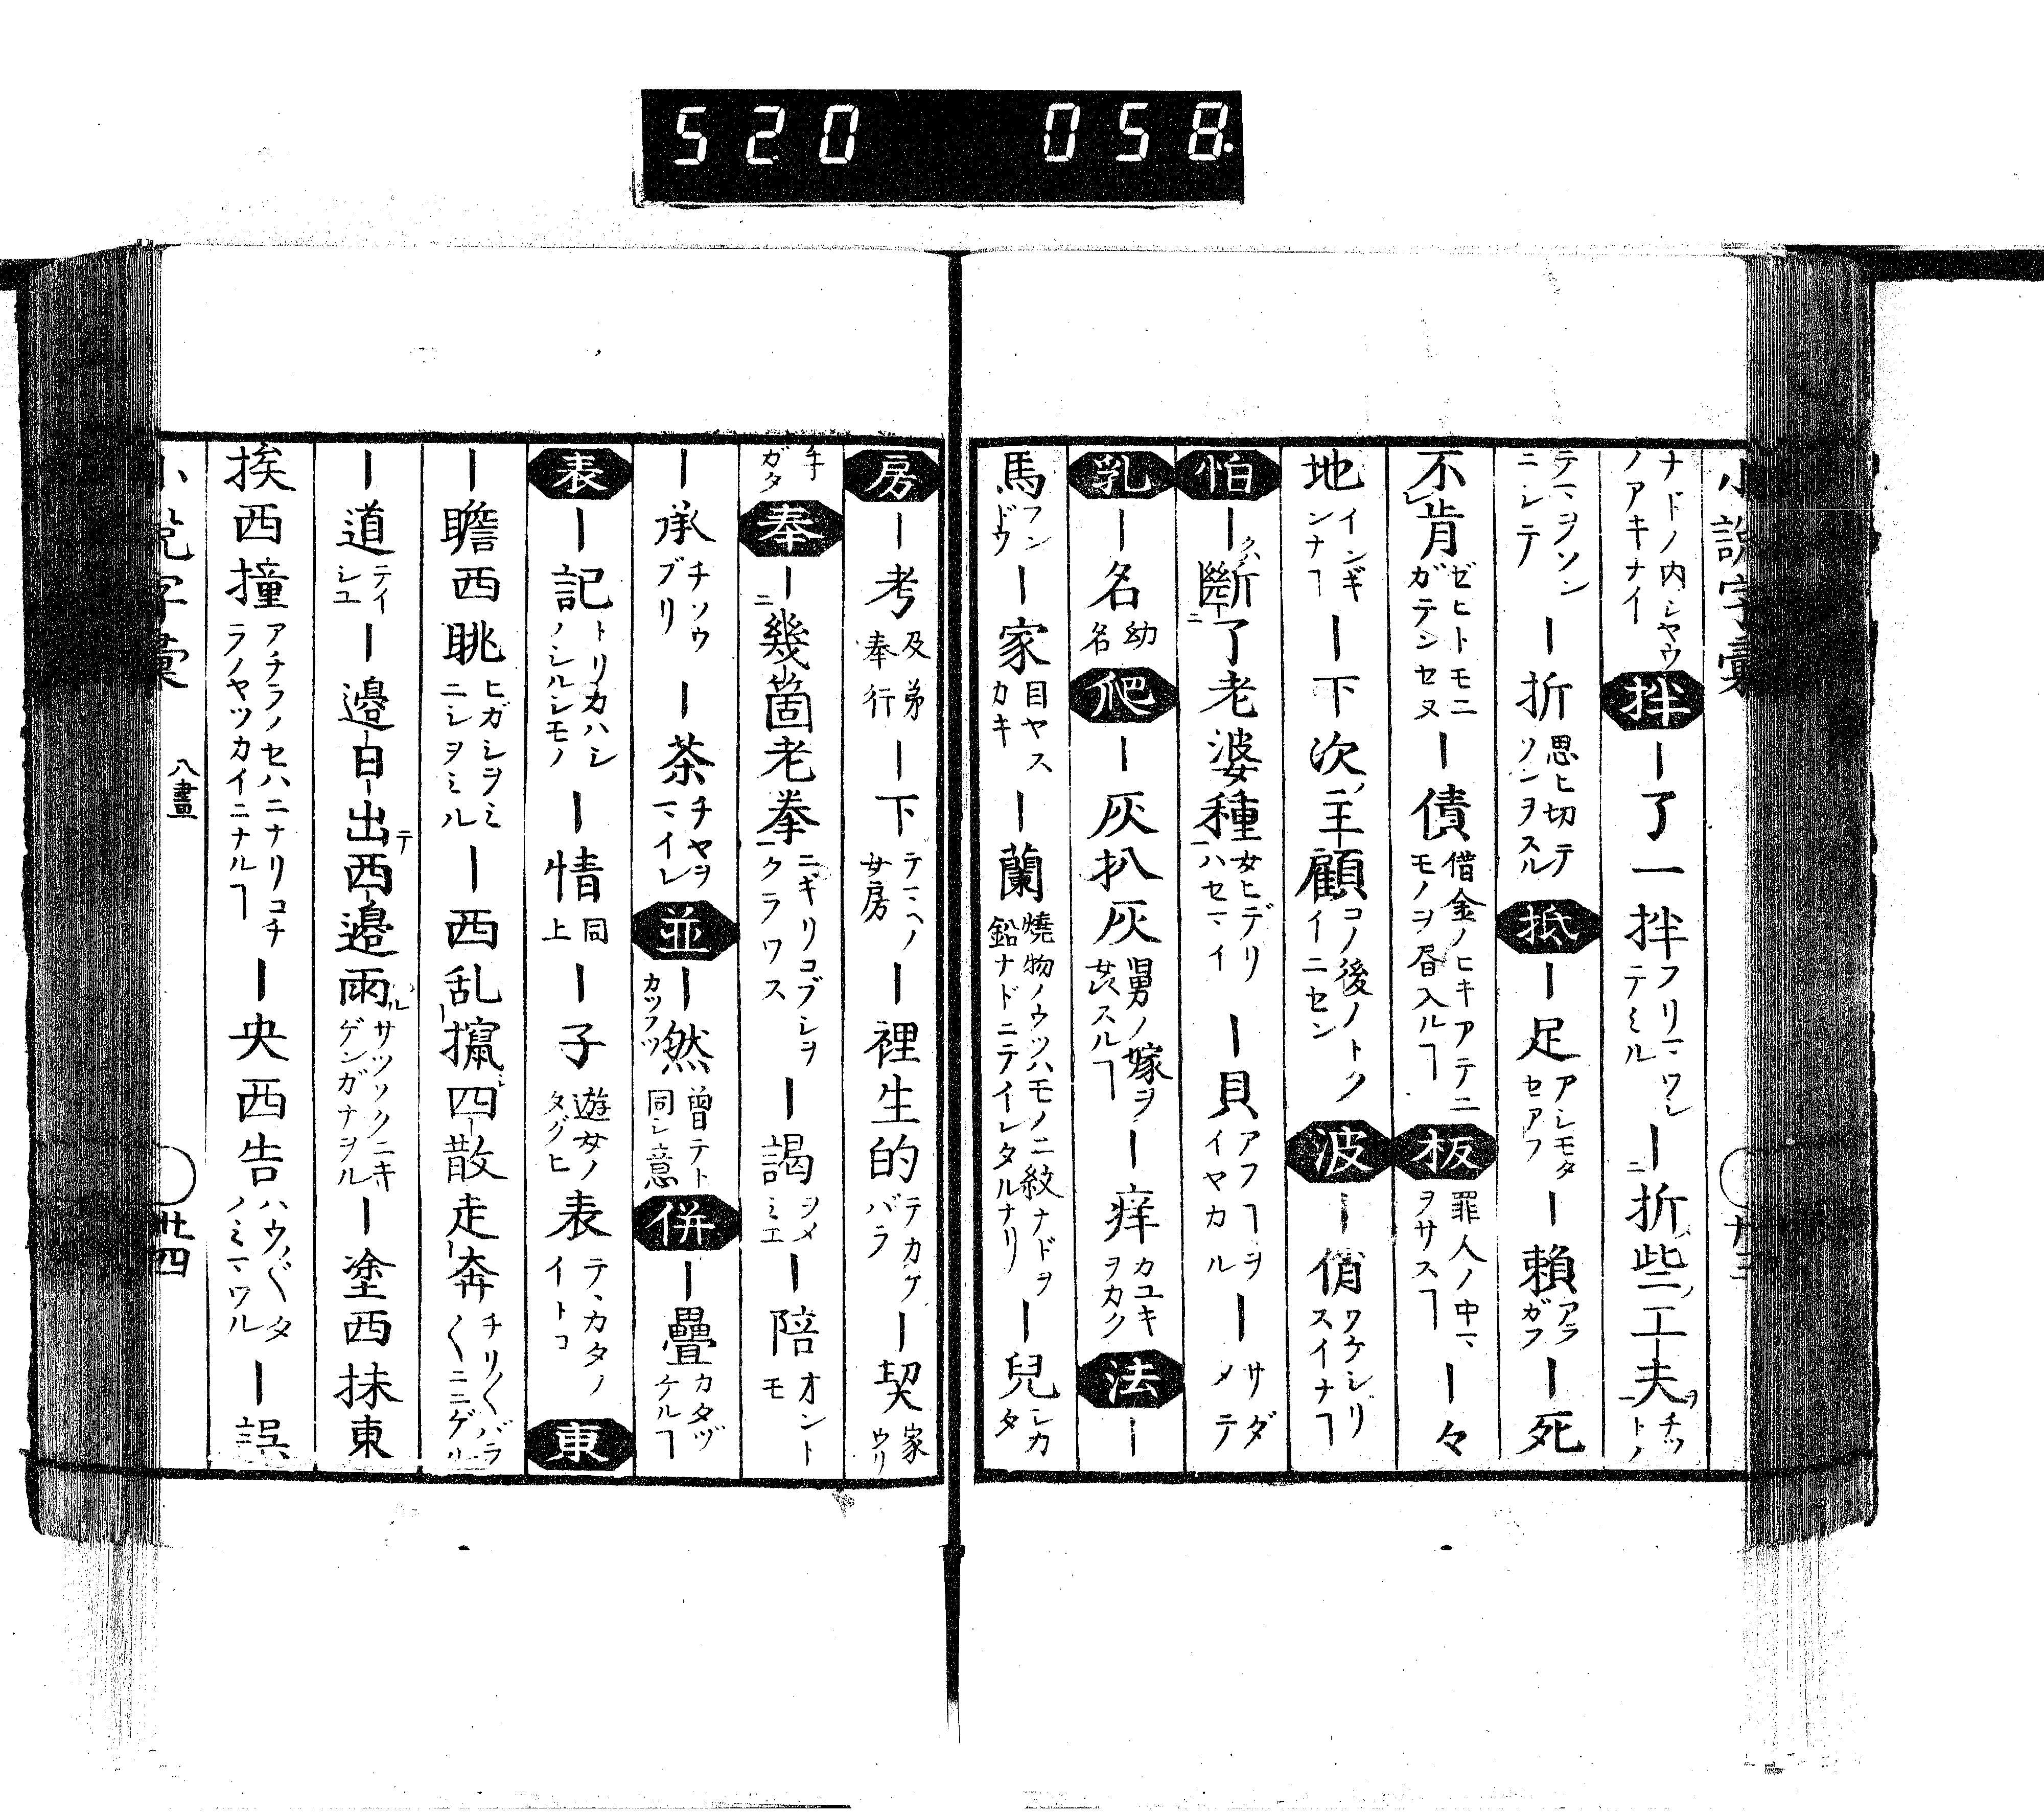 520 058
小説字彙
ナドノ内シヤウノアキナイ 拌 ー了一拌 フリマワシテミル ー折些工夫 チツトノ
テマヲソンニシテ ー折 思ヒ切テソンヲスル 抵 ー足 アシモタセアフ ー頼 アラガフ ー死
不肯 ゼヒトモニガテンセヌ ー債 借金ノヒキアテニモノヲ昼入ルヿ 板 罪人ノ中マヲサスヿ ー々
地 インギンナヿ ー下次主顧 コノ後ノトクイニセン 波 ー俏 ワケシリスイナヿ
怕 ー斷了老婆種 女ヒデリハセマイ ー貝 アフヿヲイヤカル ー サダメテ
乳 ー名 幼名 爬 ー灰扒灰 舅ノ嫁ヲ女㐧スルヿ ー痒 カユキヲカク 法 ー
馬 フンドウ ー家 目ヤスカキ ー蘭 燒物ノウツハモノニ紋ナドヲ鉛ナドニテイレタルナリ ー兒 シカタ
房 ー考 及第奉行 ー下 テマヘノ女房 ー裡生的 テカケバラ ー契 家ウリ
手ガタ 奉 ー幾箇老拳 ニギリコブシヲクラワス ー謁 ヲメミエ ー陪 オントモ
ー承 チソウブリ ー茶 チヤヲマイレ 並 ー然 カツフツ 曽テト同シ意 併 ー疊 カタヅケルヿ
表 ー記 トリカハシノシルシモノ ー情 同上 ー子 遊女ノタグヒ 表 テヽカタノイトコ 東
ー瞻西眺 ヒガシヲミニシヲミル ー西乱攛四散走奔 チリ〱バラ〱ニニゲル
ー道 テイシユ ー邉日出西邉雨 サツソクニキゲンガナヲル ー塗西抹東
挨西撞 アチラノセハニナリコチラノヤツカイニナルヿ ー央西告 ノミマワル ー誤
小説字彙 八畫 廿四